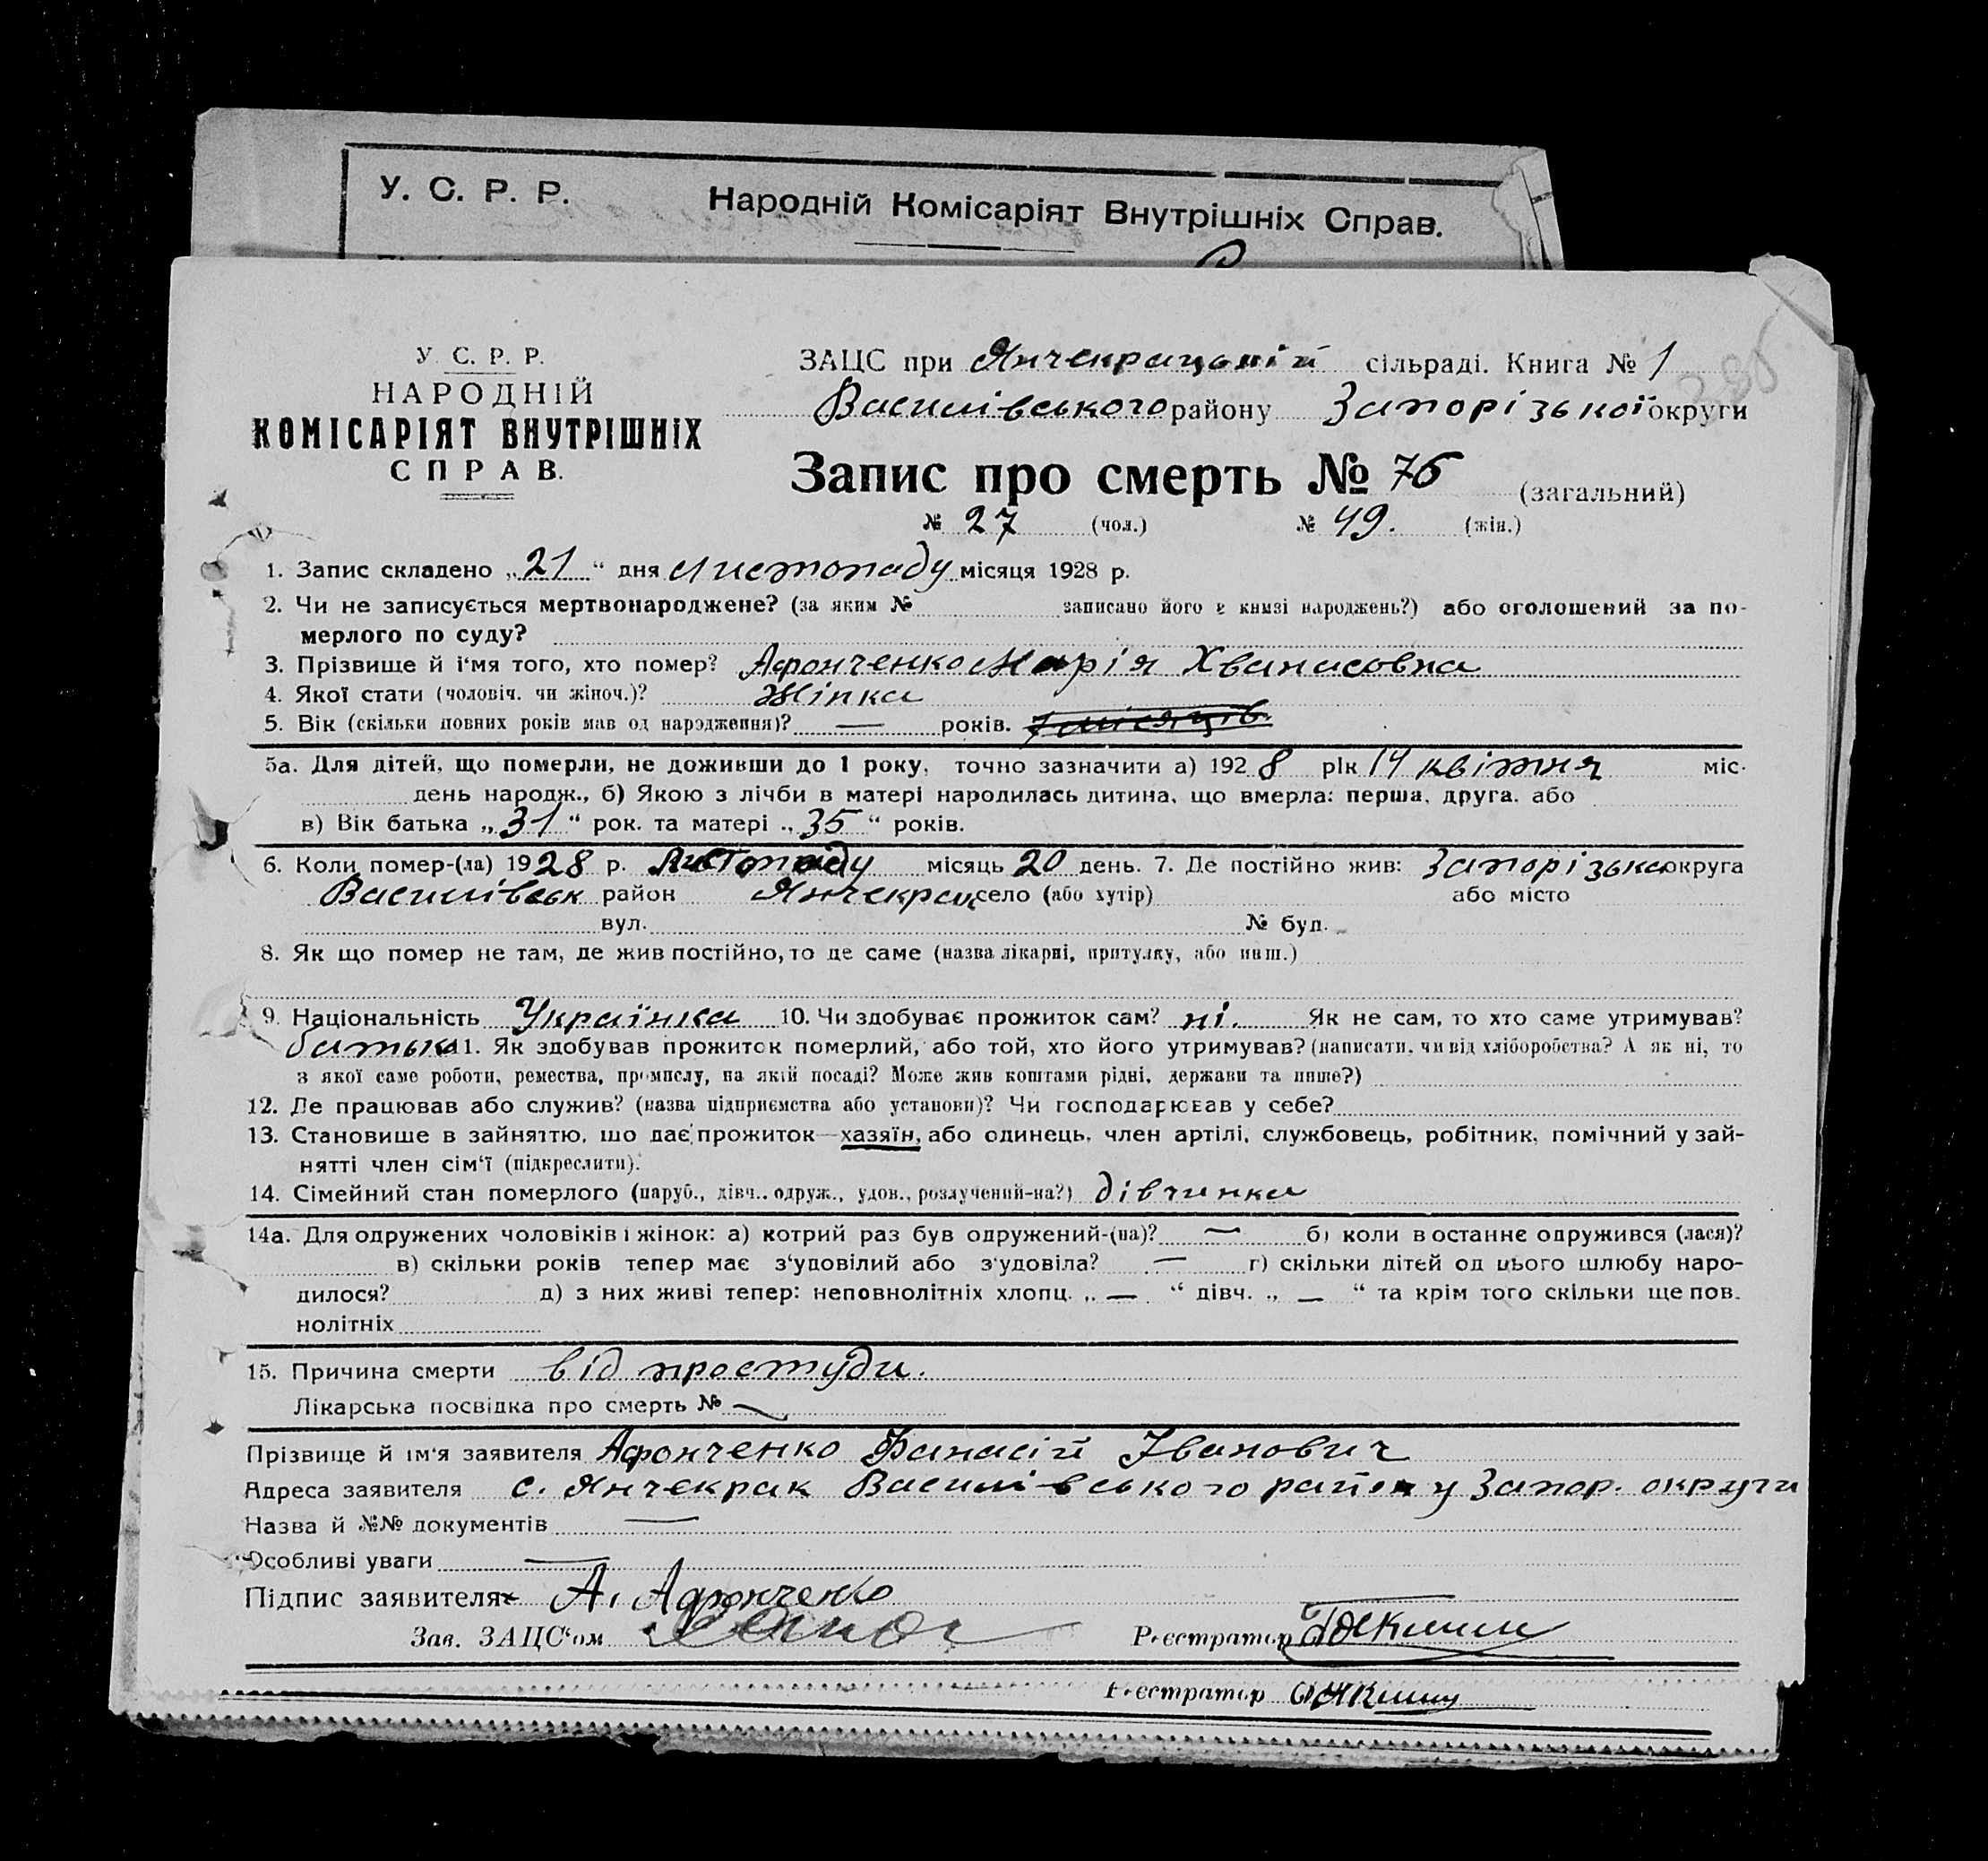 У. С. Р. Р. Народній Комісаріят Внутрішніх Справ.
У. С. Р. Р.
НАРОДНІЙ
КОМІСАРІЯТ ВНУТРІШНІХ
СПРАВ.
ЗАЦС при Янчекрацькій сільраді. Книга № 1
Василівського району Запорізької округи
Запис про смерть № 76 (загальний)
№ 27 (чол.) № 49. (жін.)
1. Запис складено „21“ дня листопаду місяця 1928 р.
2. Чи не записується мертвонароджене? (за яким № записано його в книзі народжень?) або оголошений за по-
мерлого по суду?
3. Прізвище й і‘мя того, хто помер? Афонченко Марія Хванасовна
4. Якої стати (чоловіч. чи жіноч.)? Жінка
5. Вік (скільки повних років мав од народження)? — років. 7 місяців
5а. Для дітей, що померли, не доживши до 1 року, точно зазначити а) 1928 рік 14 квітня міс.
день народж., б) Якою з лічби в матері народилась дитина, що вмерла: перша, друга, або
в) Вік батька „31“ рок. та матері „35“ років.
6. Коли помер-(ла) 1928 р. Листопаду місяць 20 день. 7. Де постійно жив: Запорізька округа
Василівськ район Янчекрац село (або хутір) або місто
вул. № буд.
8. Як що помер не там, де жив постійно, то де саме (назва лікарні, притулку, або инш.)
9. Національність Українка 10. Чи здобуває прожиток сам? ні. Як не сам, то хто саме утримував?
батько 11. Як здобував прожиток померлий, або той, хто його утримував? (написати, чи від хліборобства? А як ні, то
з якої саме роботи, ремества, промислу, на якій посаді? Може жив коштами рідні, держави та инше?)
12. Де працював або служив? (назва підприємства або установи)? Чи господарював у себе?
13. Становище в зайняттю, що дає прожиток—хазяїн, або одинець, член артілі, службовець, робітник, помічний у зай-
нятті член сім‘ї (підкреслити).
14. Сімейний стан померлого (паруб., дівч., одруж., удов., розлучений-на?) дівчинка
14а. Для одружених чоловіків і жінок: а) котрий раз був одружений-(на)? — б) коли в останнє одружився (лася)?
в) скільки років тепер має з‘удовілий або з‘удовіла? — г) скільки дітей од цього шлюбу наро-
дилося? д) з них живі тепер: неповнолітніх хлопц. „—“ дівч. „—“ та крім того скільки ще пов.
нолітніх
15. Причина смерти від простуди.
Лікарська посвідка про смерть № —
Прізвище й ім‘я заявителя Афонченко Фанасій Іванович
Адреса заявителя с. Янчекрак Василівського району Запор. округи
Назва й №№ документів —
Особливі уваги —
Підпис заявителя А. Афонченко
Зав. ЗАЦС‘ом
Реєстратор
Реєстратор